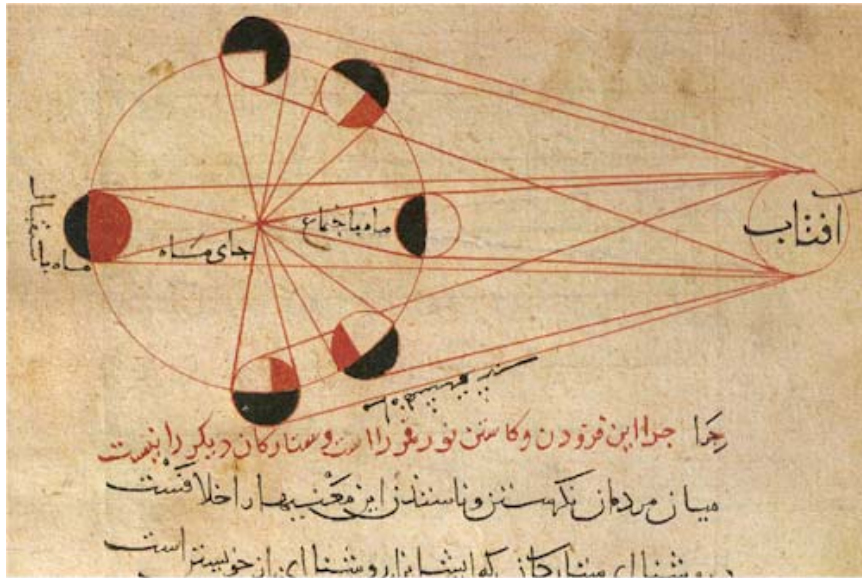 افتاب
ماه باجتماع
جای ماه
ماه باستقبال
چرا این فزودن و کاستن نور قمر را است و ستارکان دیکر را نیست
میان مردمان این معنیها را خلافست
روشنای ستارکان که ایشانرا روشنای از خویشتن است